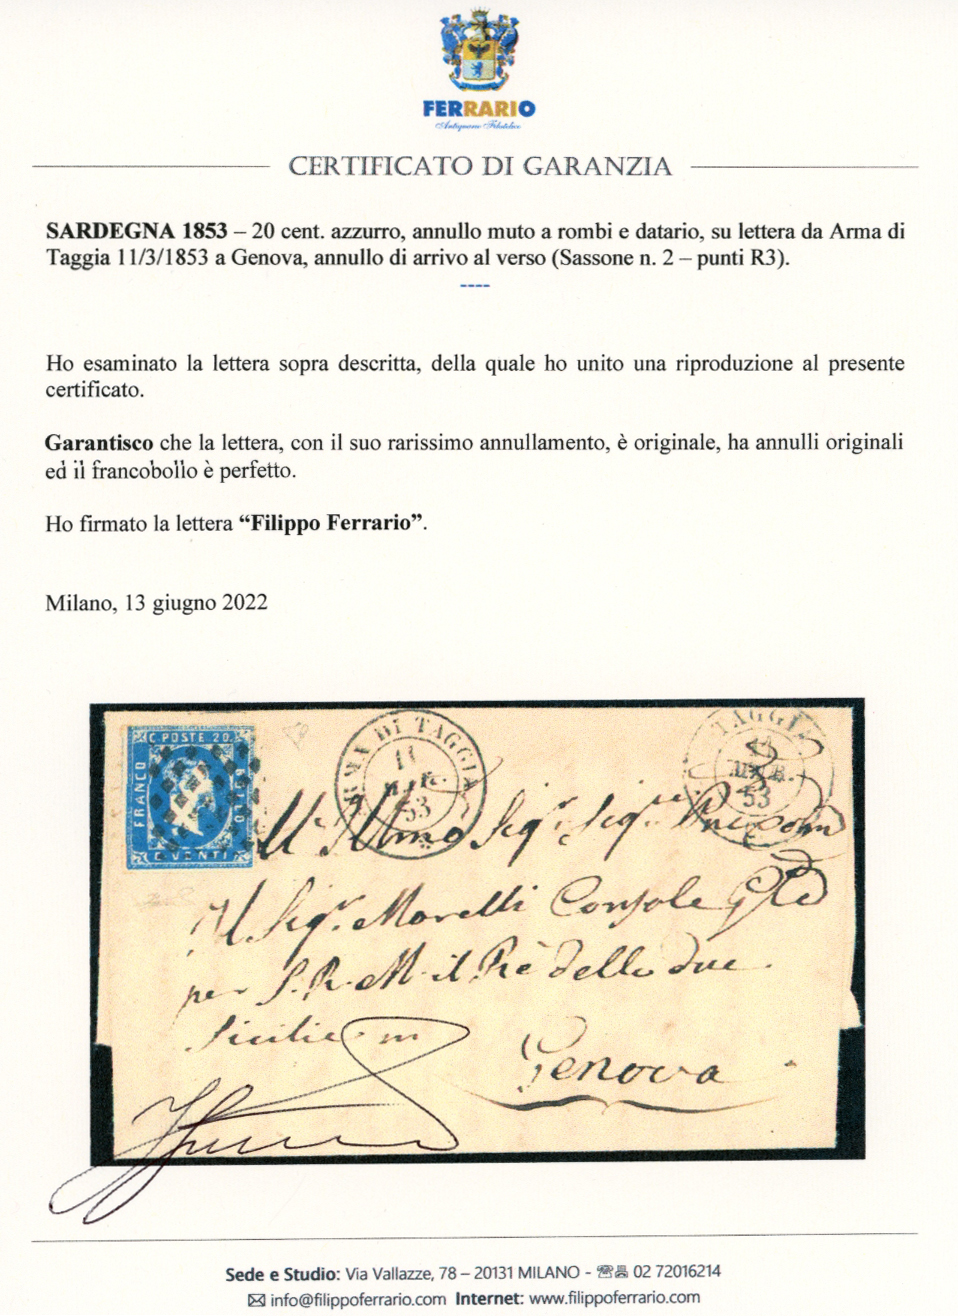 FERRARIO
Antiquario Filatelico
CERTIFICATO DI GARANZIA
SARDEGNA 1853 – 20 cent. azzurro, annullo muto a rombi e datario, su lettera da Arma di
Taggia 11/3/1853 a Genova, annullo di arrivo al verso (Sassone n. 2 – punti R3).
----
Ho esaminato la lettera sopra descritta, della quale ho unito una riproduzione al presente
certificato.
Garantisco che la lettera, con il suo rarissimo annullamento, è originale, ha annulli originali
ed il francobollo è perfetto.
Ho firmato la lettera “Filippo Ferrario”.
Milano, 13 giugno 2022
C. POSTE 20.
FRANCO
BOLLO
C. VENTI
RMA DI TAGGIA
11
MAR.
53
TAGGIA
11
MAR.
53
Sigr Sigr
Il Sigr. Morelli Console Gle
per S. R. M. il Rè delle due
Sicilie in
Genova
Sede e Studio: Via Vallazze, 78 – 20131 MILANO - 02 72016214
info@filippoferrario.com Internet: www.filippoferrario.com